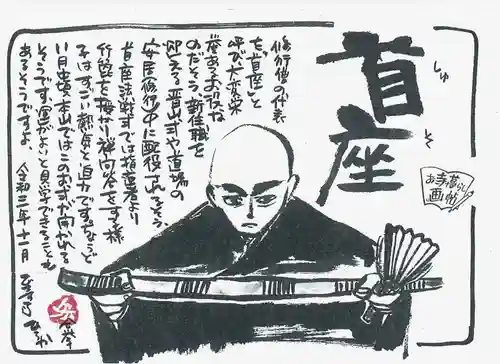 首座
しゅ
そ
お寺暮らし
画帖
修行僧の代表
を「首座」と
呼び大変栄
誉あるお役な
のだそう。新住職を
迎える晋山式や道場の
安居(修行)中に配役されるそう。
首座法戦式では指導者より
竹篦を授かり禅問答をする様
子はすっごい熱気と迫力です。ちょうど
11月中頃、本山ではこのお式が開かれる
そうです、運がよいと見学できることも
あるそうですよ。 令和三年十一月
合掌